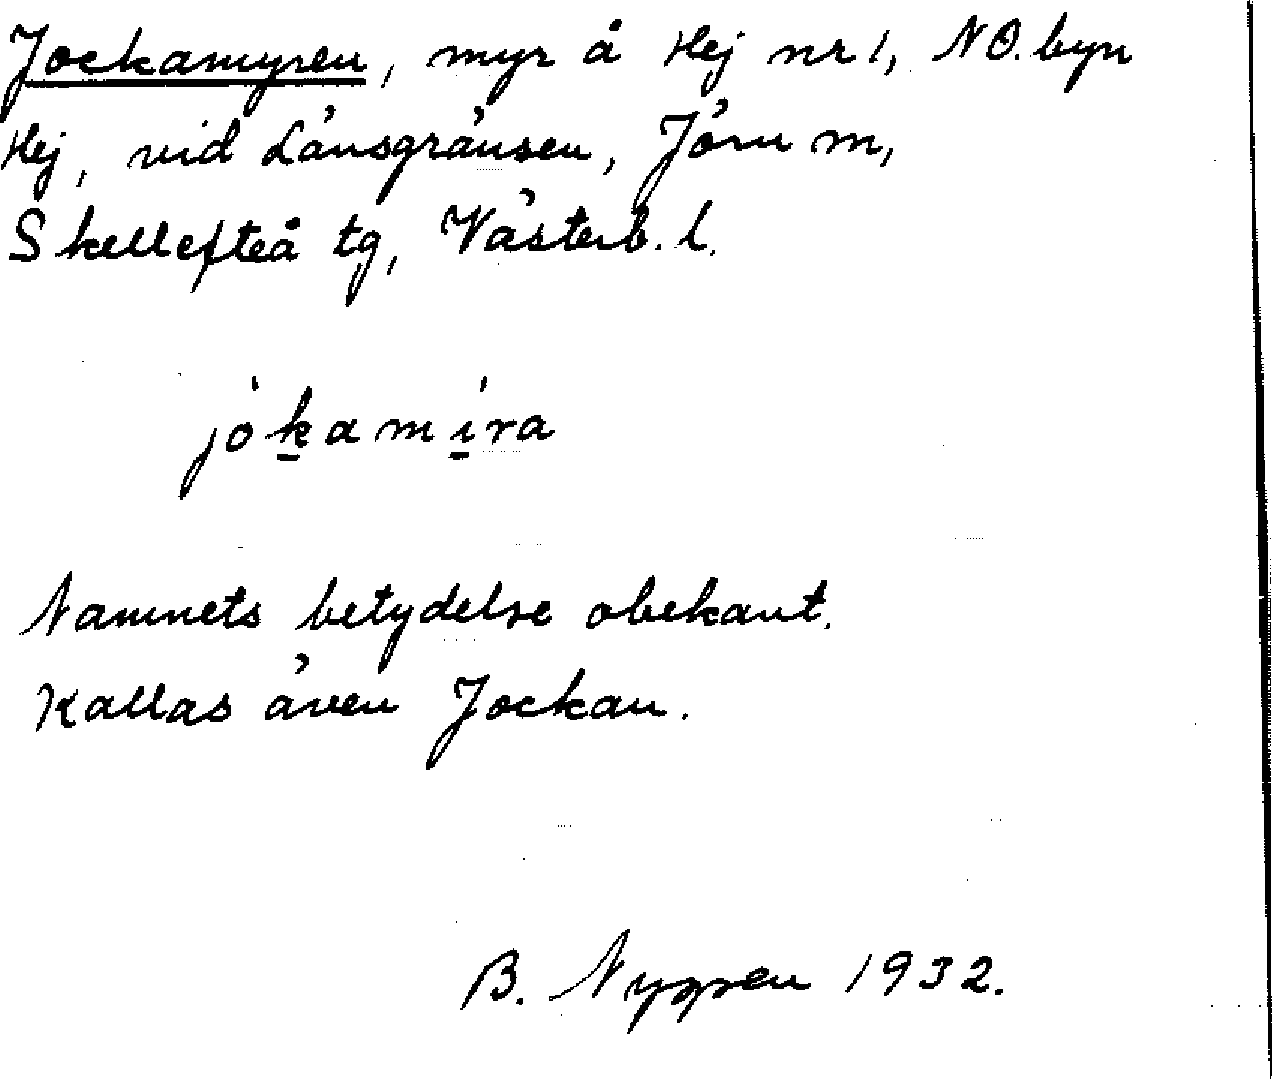 Jockamyren, myr å Hej nr 1, NO. byn
Hej, vid Länsgränsen, Jörn m,
Skellefteå tg, Västerb. l.
jòk̲amí̲ra
Namnets betydelse obekant.
Kallas även Jockan.
B. Nygren 1932.